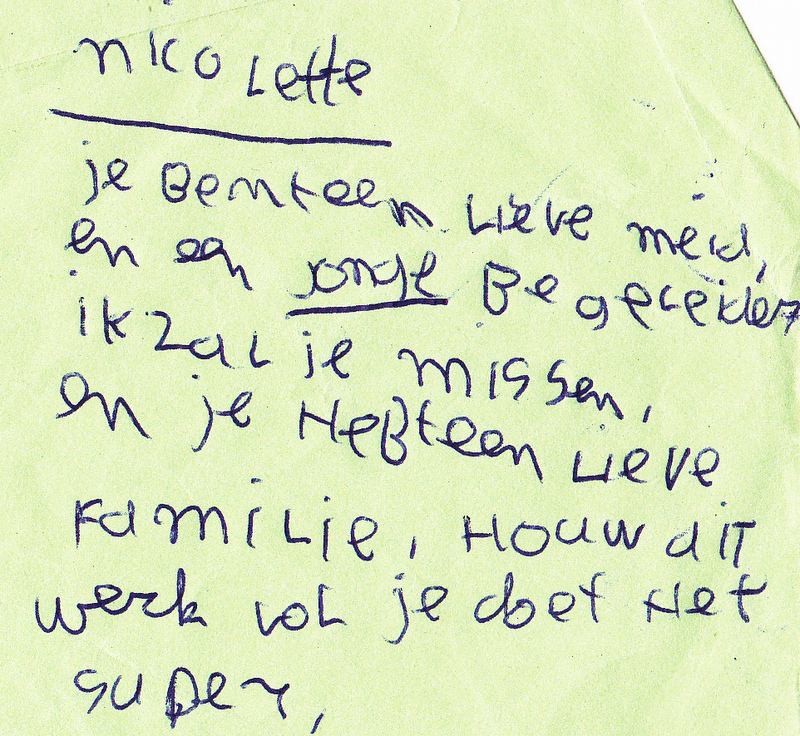 nico Lette
je Bent een Lieve meid,
en een jonge Begeleider
ik zal je missen,
en je HeBt een Lieve
Familie, Houw dit
werk vol je doet Het
super,